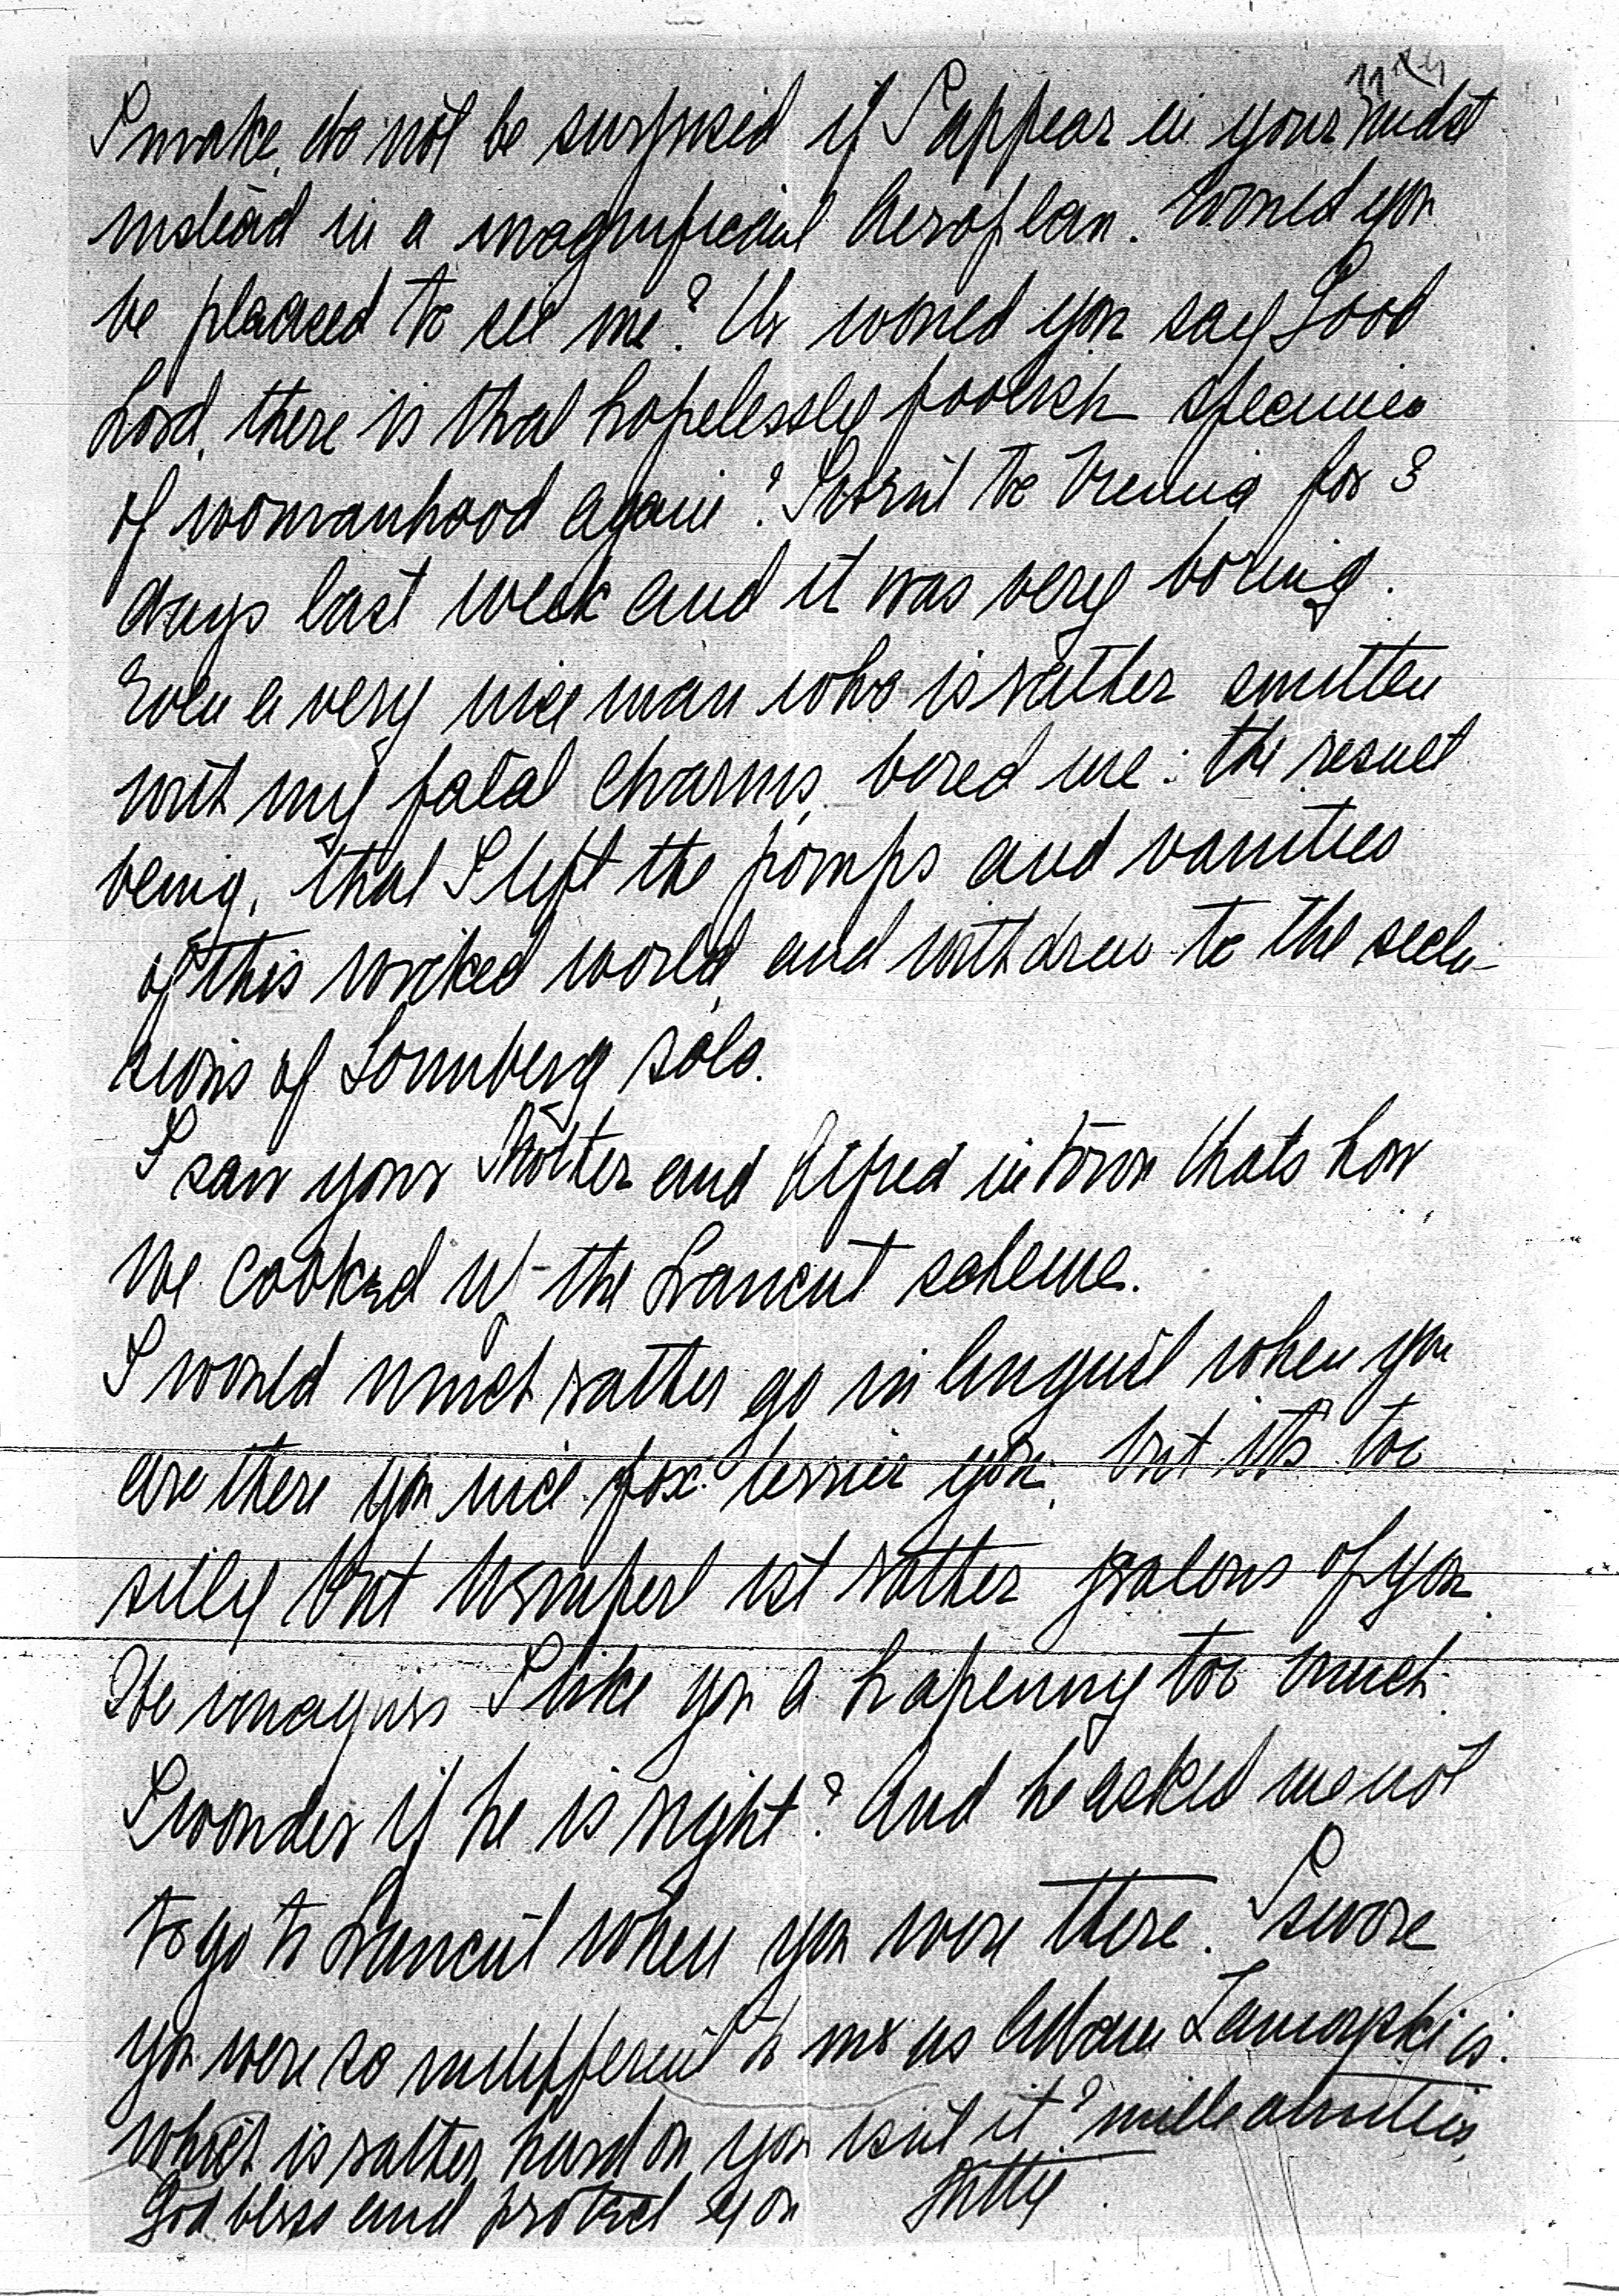 I make, do not be surprised if I appear in your midst
instead in a magnificent Aeroplan. Would you
be pleased to see me? Or would you say Good
Lord, there is that hopelessly foolish specimen
of womanhood again? I went to Vienna for 3
days last week and it was very boring.
Even a very nice man who is rather smitten
with my fatal charms, bored me: the result
being, that I left the pomps and vanities
of this wicked world, and withdrew to the seclu-
sions of Sonnberg solo.
I saw your Mother and Alfred in town thats how
we cooked up the Lancut scheme.
I would much rather go in August when you
are there you nice fox-terrier you, but its too
silly but Wimperl ist rather jealous of you.
He imagins I like you a hapenny too much.
I wonder if he is right? And he asked me not
to go to Lancut when you were there. I swore
you were so indifferent to me as Adam Zamoyski is.
Which is rather hard on you isnt it? mille amities,
God bless and protect you Kitty.